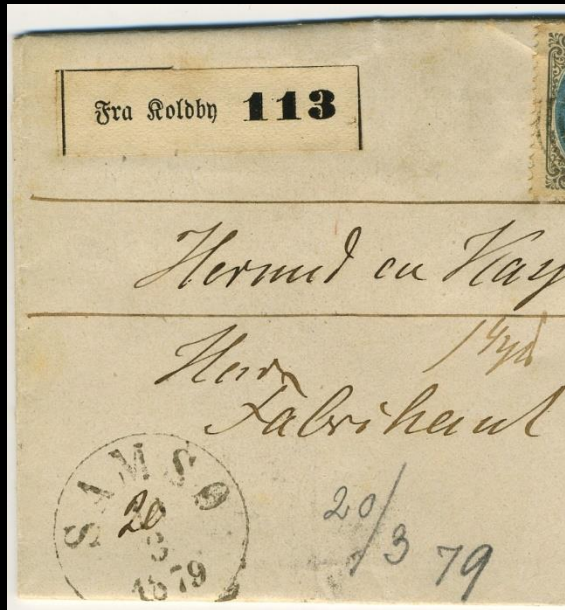 Fra Koldby 113
Hermed en Kas
Herr
Fabrikant
SAMSØ
20
3
1879
20/3 79